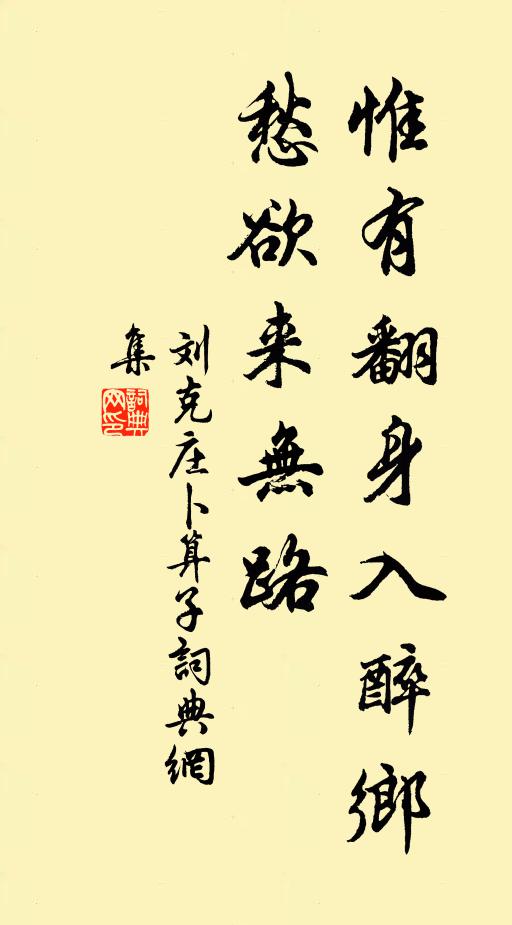 惟有翻身入醉鄉
愁欲来無路
刘克庄卜算子詞典網
集
詞典
网印